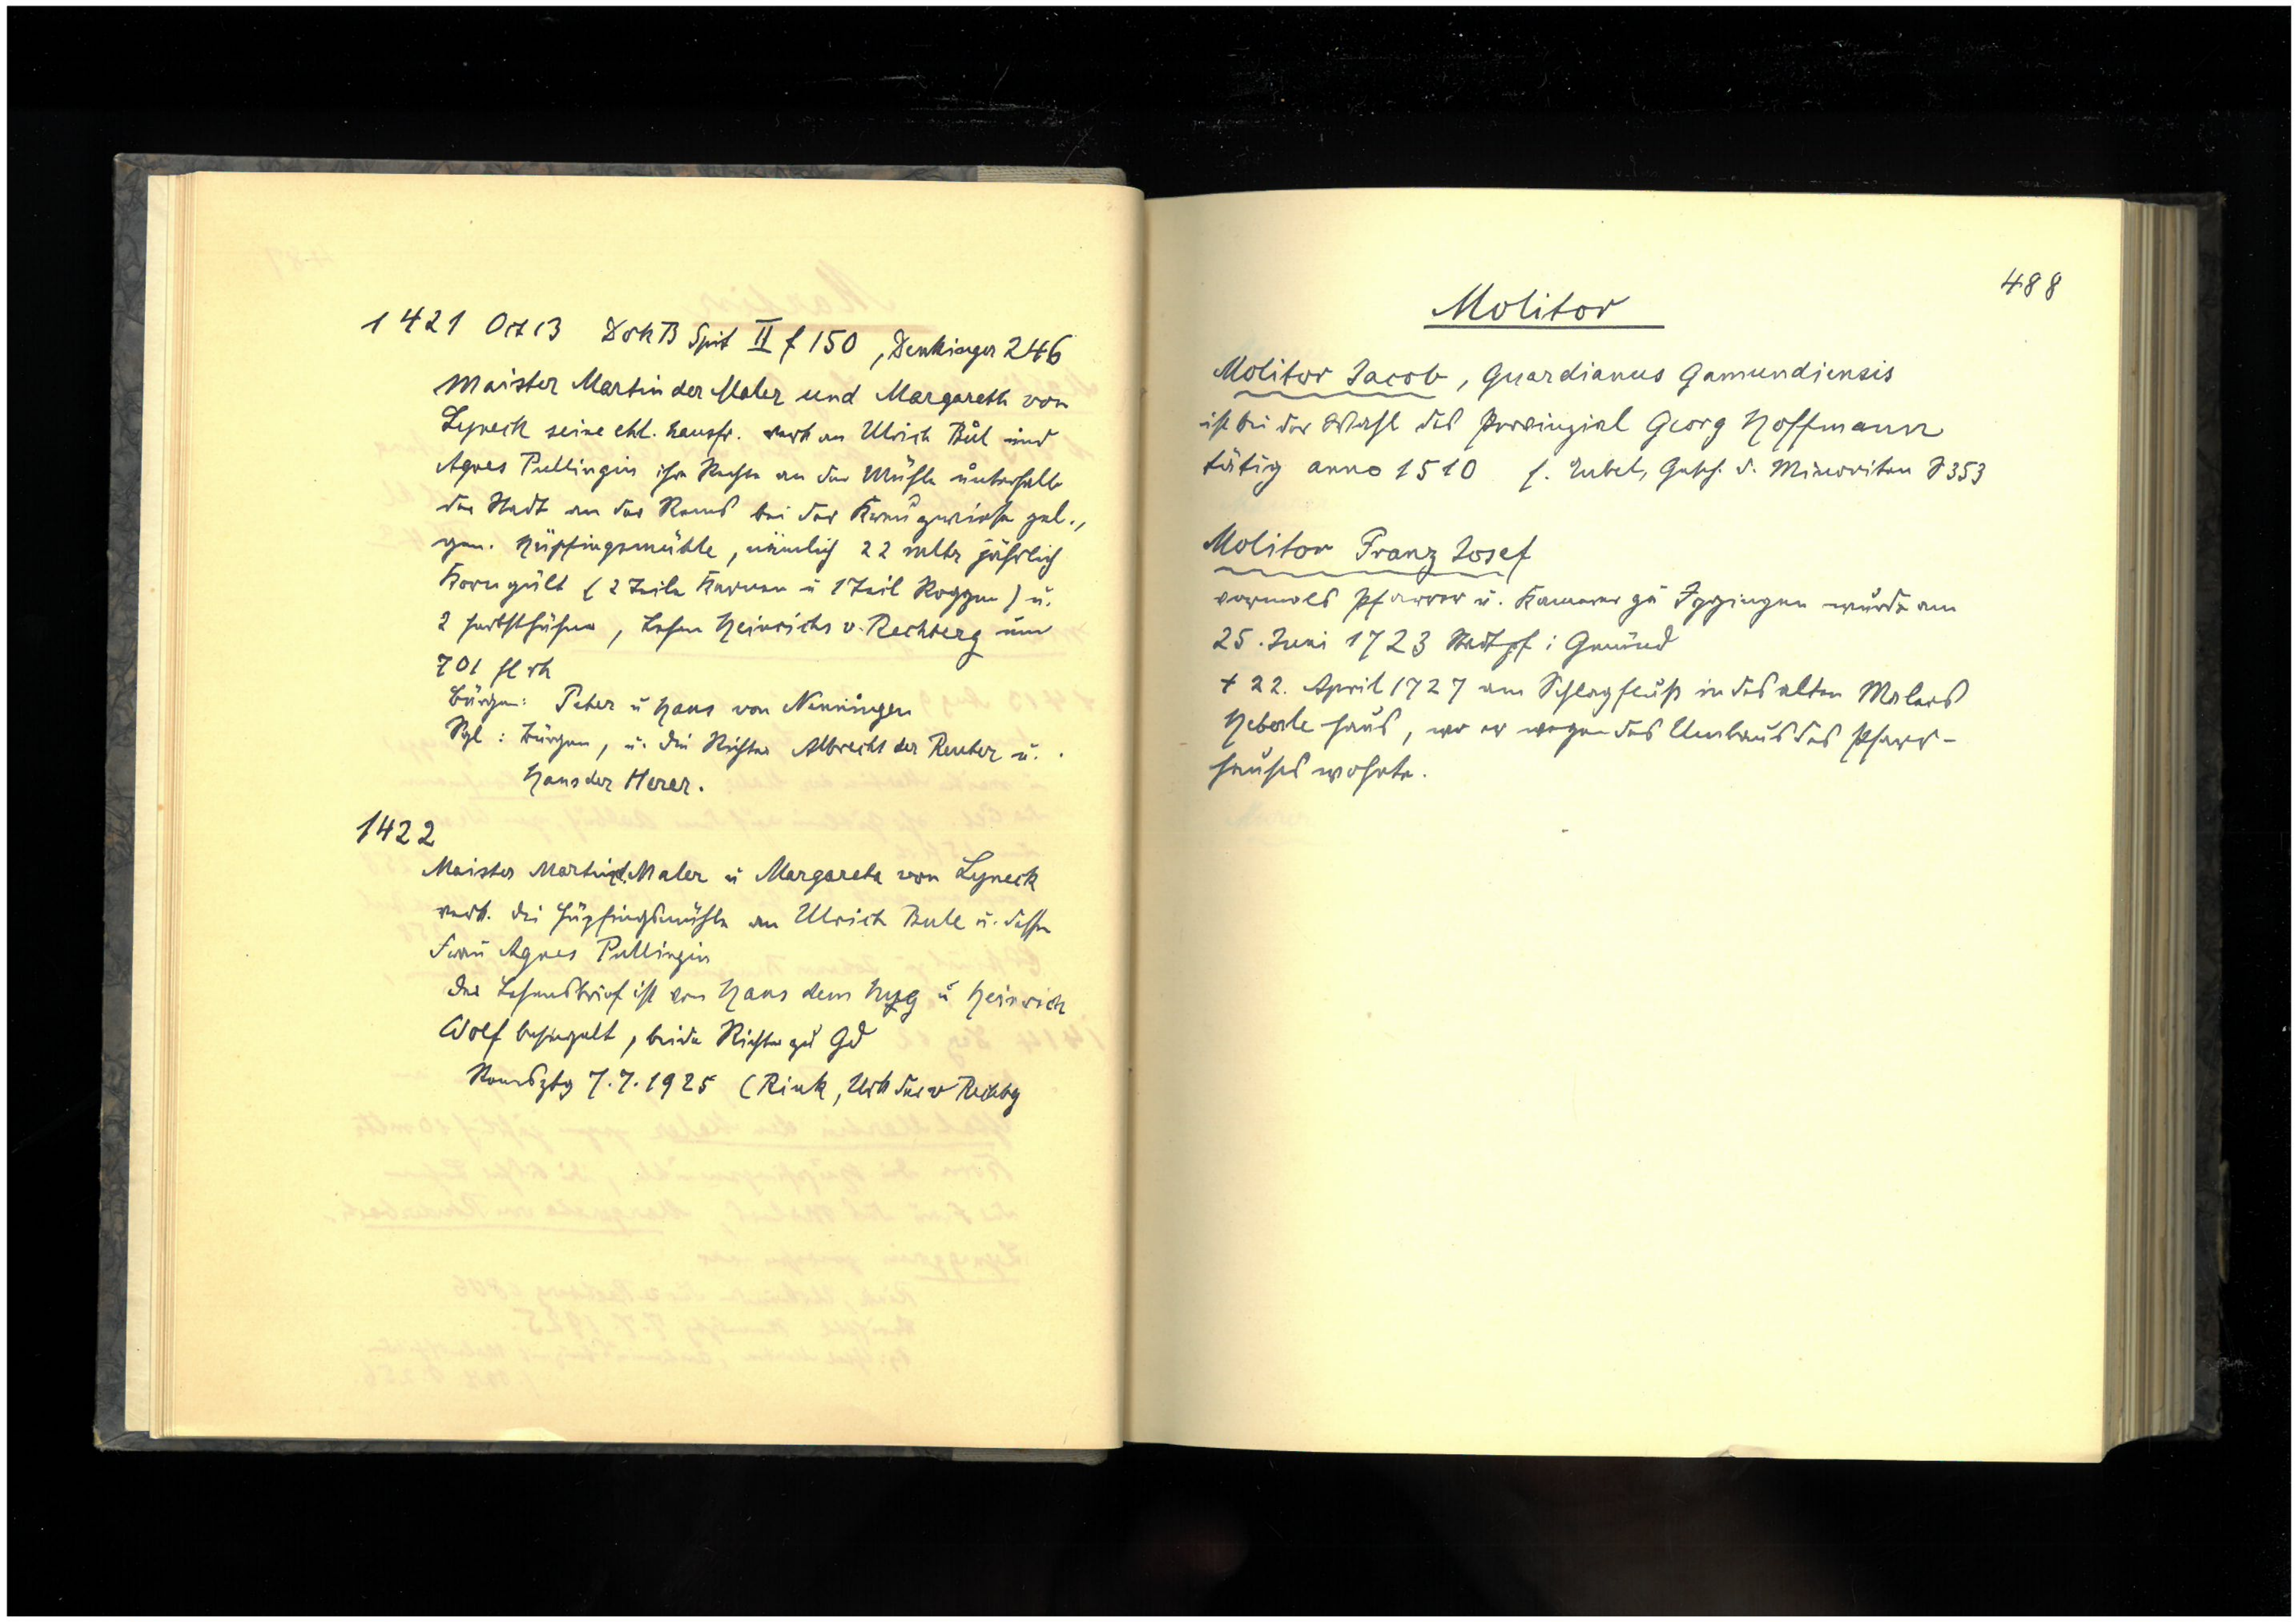 1421 Oct 13 DokB Spit II f 150, Denkinger 246
Maister Martin der Maler und Margareth von
Lyneck seine ehl. hausfr. verk an Ulrich Bůl und
Agnes Pullingin ihre Rechte an der Mühle unterhalb
der Stadt an der Rems bei der gel.,
gen. Hüpfingsmühle, nämlich 22 mltr jährlich
Korngült (2 Teile Kernen u 1 Teil Roggen) u.
2 Herbsthühner, Lehen Heinrichs v. Rechberg um
701 fl rh
Bürgen: Peter u Hans von Nenningen
Sgl: Bürgen, u. die Richter Albrecht der Reuter u.
Hans der Herer.
1422
Maister Martin d. Maler u Margareta von Lyneck
verk. die Hüpfingsmühle an Ulrich Bule u. dessen
Frau Agnes Pullingin
der Lehensbrief ist von Hans dem u Heinrich
Wolf besiegelt, beide Richter zu Gd
Remsztg 7.7.1925 (Rink, Urk der v Rechbg
488
Molitor
Molitor Jacob, Guardianus Gamundiensis
ist bei der Wahl des Provinzial Georg Hoffmann
tätig anno 1510 s. Eubel, Gesch. d. Minoriten S 353
Molitor Franz Josef
vormals Pfarrer u. Kamerer zu Iggingen wurde am
25. Juni 1723 Stadtpf i Gmünd
† 22. April 1727 am Schlagfluß in des alten Malers
Heberle Haus, wo er wegen des Umbaus des Pfarr-
hauses wohnte.